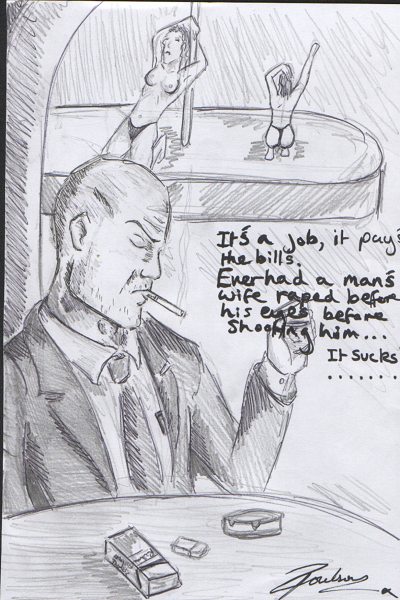 It's a job, it pay's
the bills.
Ever had a man's
wife raped before
his eyes, before
shooting him...
It sucks
........